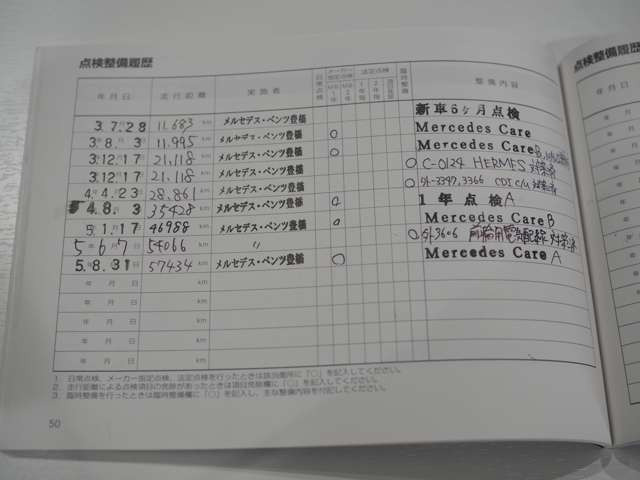 点検整備履歴
点検整備履歴
年月日 走行距離 実施者 日常点検 メーカー指定点検 法定点検 臨時整備 整備内容
年月日
3.7.28 11,683 km メルセデス・ベンツ豊橋 新車6ヶ月点検
3.8.3 11,995 km メルセデス・ベンツ豊橋 ○ Mercedes Care
3.12.17 21,118 km メルセデス・ベンツ豊橋 ○ Mercedes Care B
3.12.17 21,118 km メルセデス・ベンツ豊橋 ○ C-0124 HERMES 対策済
4.4.23 28,861 km メルセデス・ベンツ豊橋 ○ 3397,3366 CDI C/U
4.8.3 35428 km メルセデス・ベンツ豊橋 ○ 1年点検 A
5.1.17 46988 km メルセデス・ベンツ豊橋 ○ Mercedes Care B
5年6月7日 54066 km 〃 ○ 3606
5.8.31 57434 km メルセデス・ベンツ豊橋 ○ Mercedes Care A
年 月 日 km
年 月 日 km
年 月 日 km
年 月 日 km
年 月 日 km
1. 日常点検、メーカー指定点検、法定点検を行ったときは該当箇所に「○」を記入してください。
2. 走行距離による点検項目の免除があったときは項目免除欄に「○」を記入してください。
3. 臨時整備を行ったときは臨時整備欄に「○」を記入し、主な整備内容を付記してください。
50